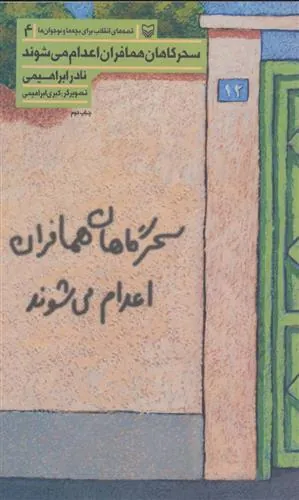 قصه‌های انقلاب برای بچه‌ها و نوجوان‌ها ۴
سحرگاهان همافران اعدام می‌شوند
نادر ابراهیمی
تصویرگر: کبری ابراهیمی
چاپ دوم
۱۲
سحرگاهان همافران
اعدام می‌شوند